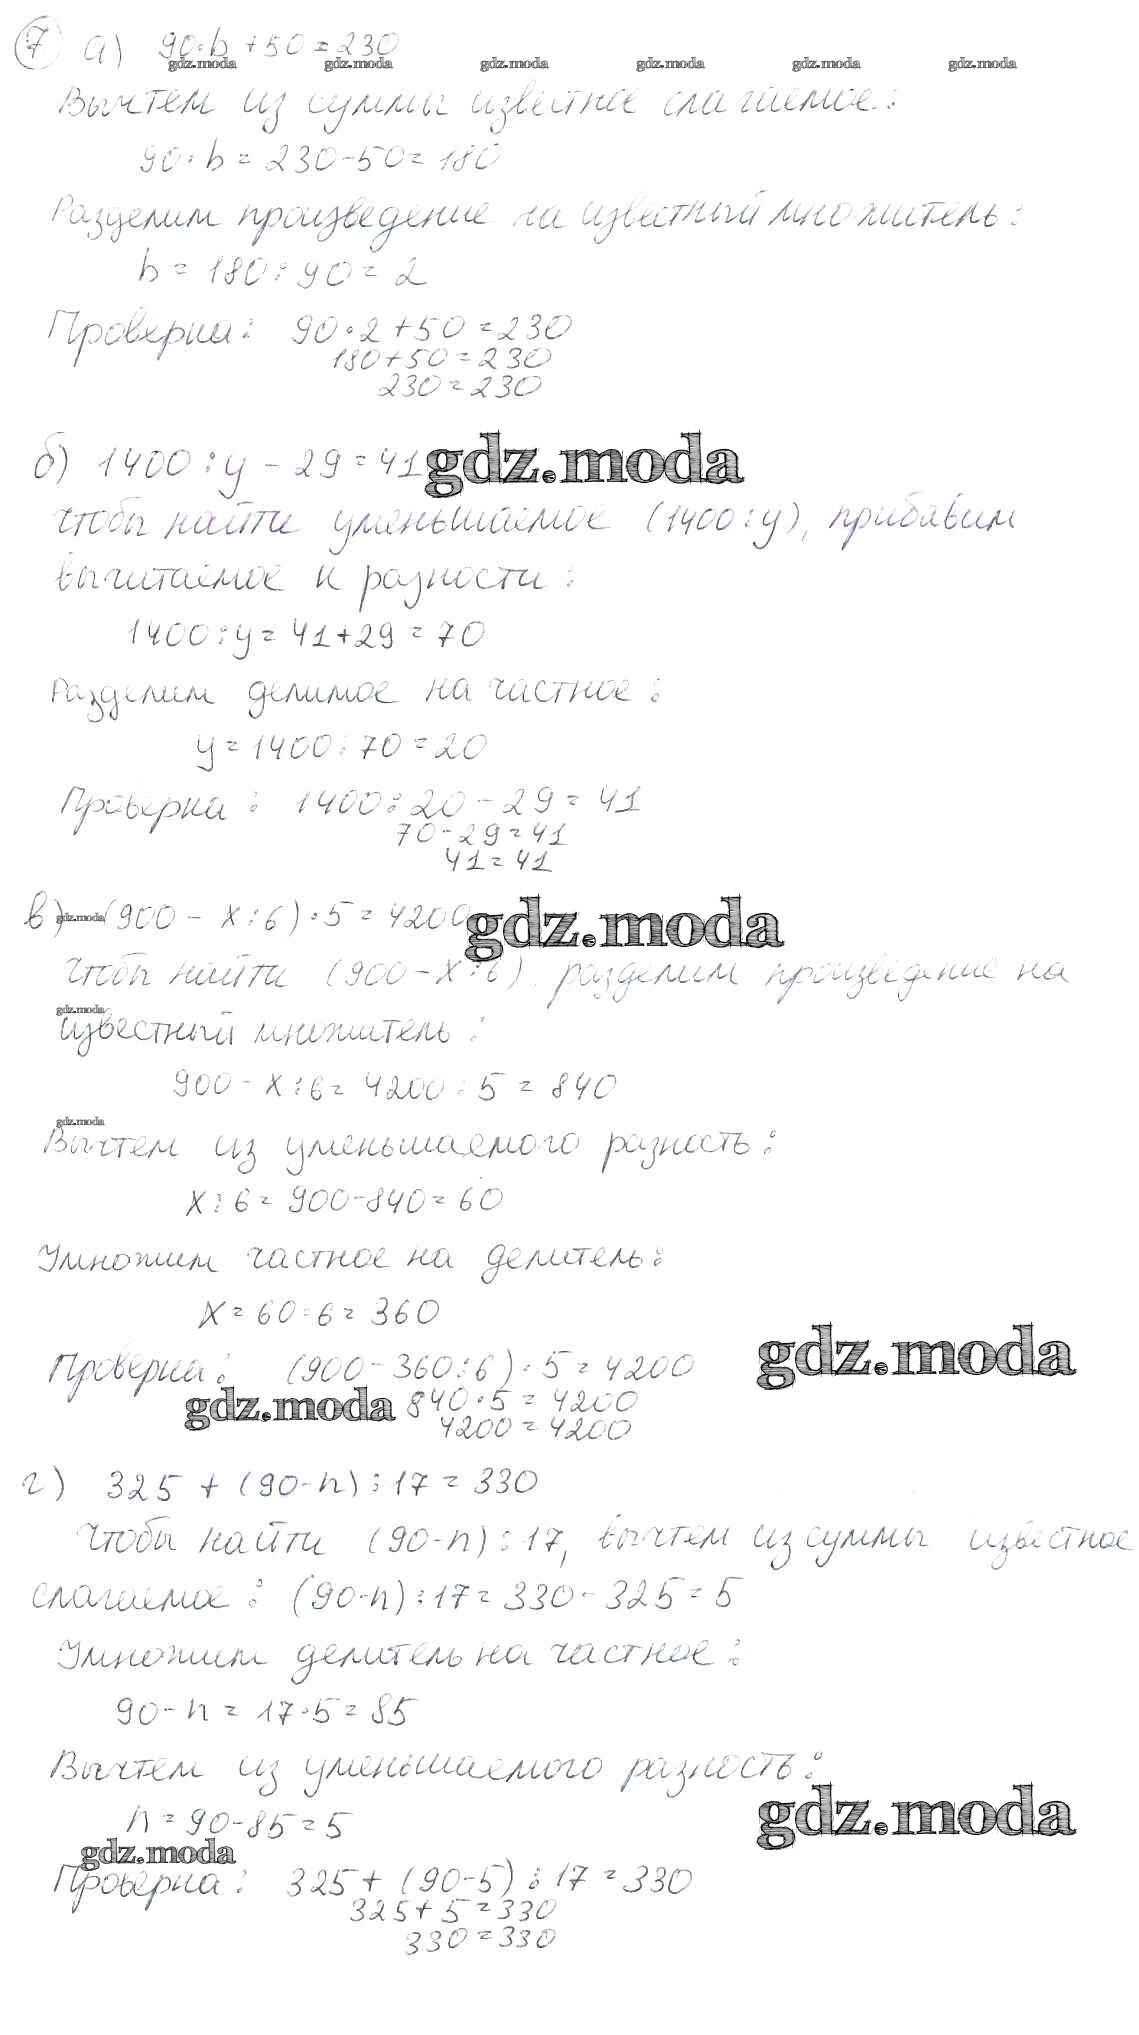 7 а) 90·b+50=230
gdz.moda gdz.moda gdz.moda gdz.moda gdz.moda gdz.moda
Вычтем из суммы известное слагаемое:
90·b=230-50=180
Разделим произведение на известный множитель:
b=180:90=2
Проверка: 90·2+50=230
180+50=230
230=230
б) 1400:y-29=41 gdz.moda
Чтобы найти уменьшаемое (1400:y), прибавим
вычитаемое к разности:
1400:y=41+29=70
Разделим делимое на частное:
y=1400:70=20
Проверка: 1400:20-29=41
70-29=41
41=41
в) gdz.moda (900-x:6)·5=4200 gdz.moda
Чтобы найти (900-x:6), разделим произведение на
gdz.moda
известный множитель:
900-x:6=4200:5=840
gdz.moda
Вычтем из уменьшаемого разность:
x:6=900-840=60
Умножим частное на делитель:
x=60·6=360
gdz.moda
Проверка: (900-360:6)·5=4200
gdz.moda 840·5=4200
4200=4200
г) 325+(90-n):17=330
Чтобы найти (90-n):17, вычтем из суммы известное
слагаемое: (90-n):17=330-325=5
Умножим делитель на частное:
90-n=17·5=85
Вычтем из уменьшаемого разность:
n=90-85=5 gdz.moda
gdz.moda
Проверка: 325+(90-5):17=330
325+5=330
330=330